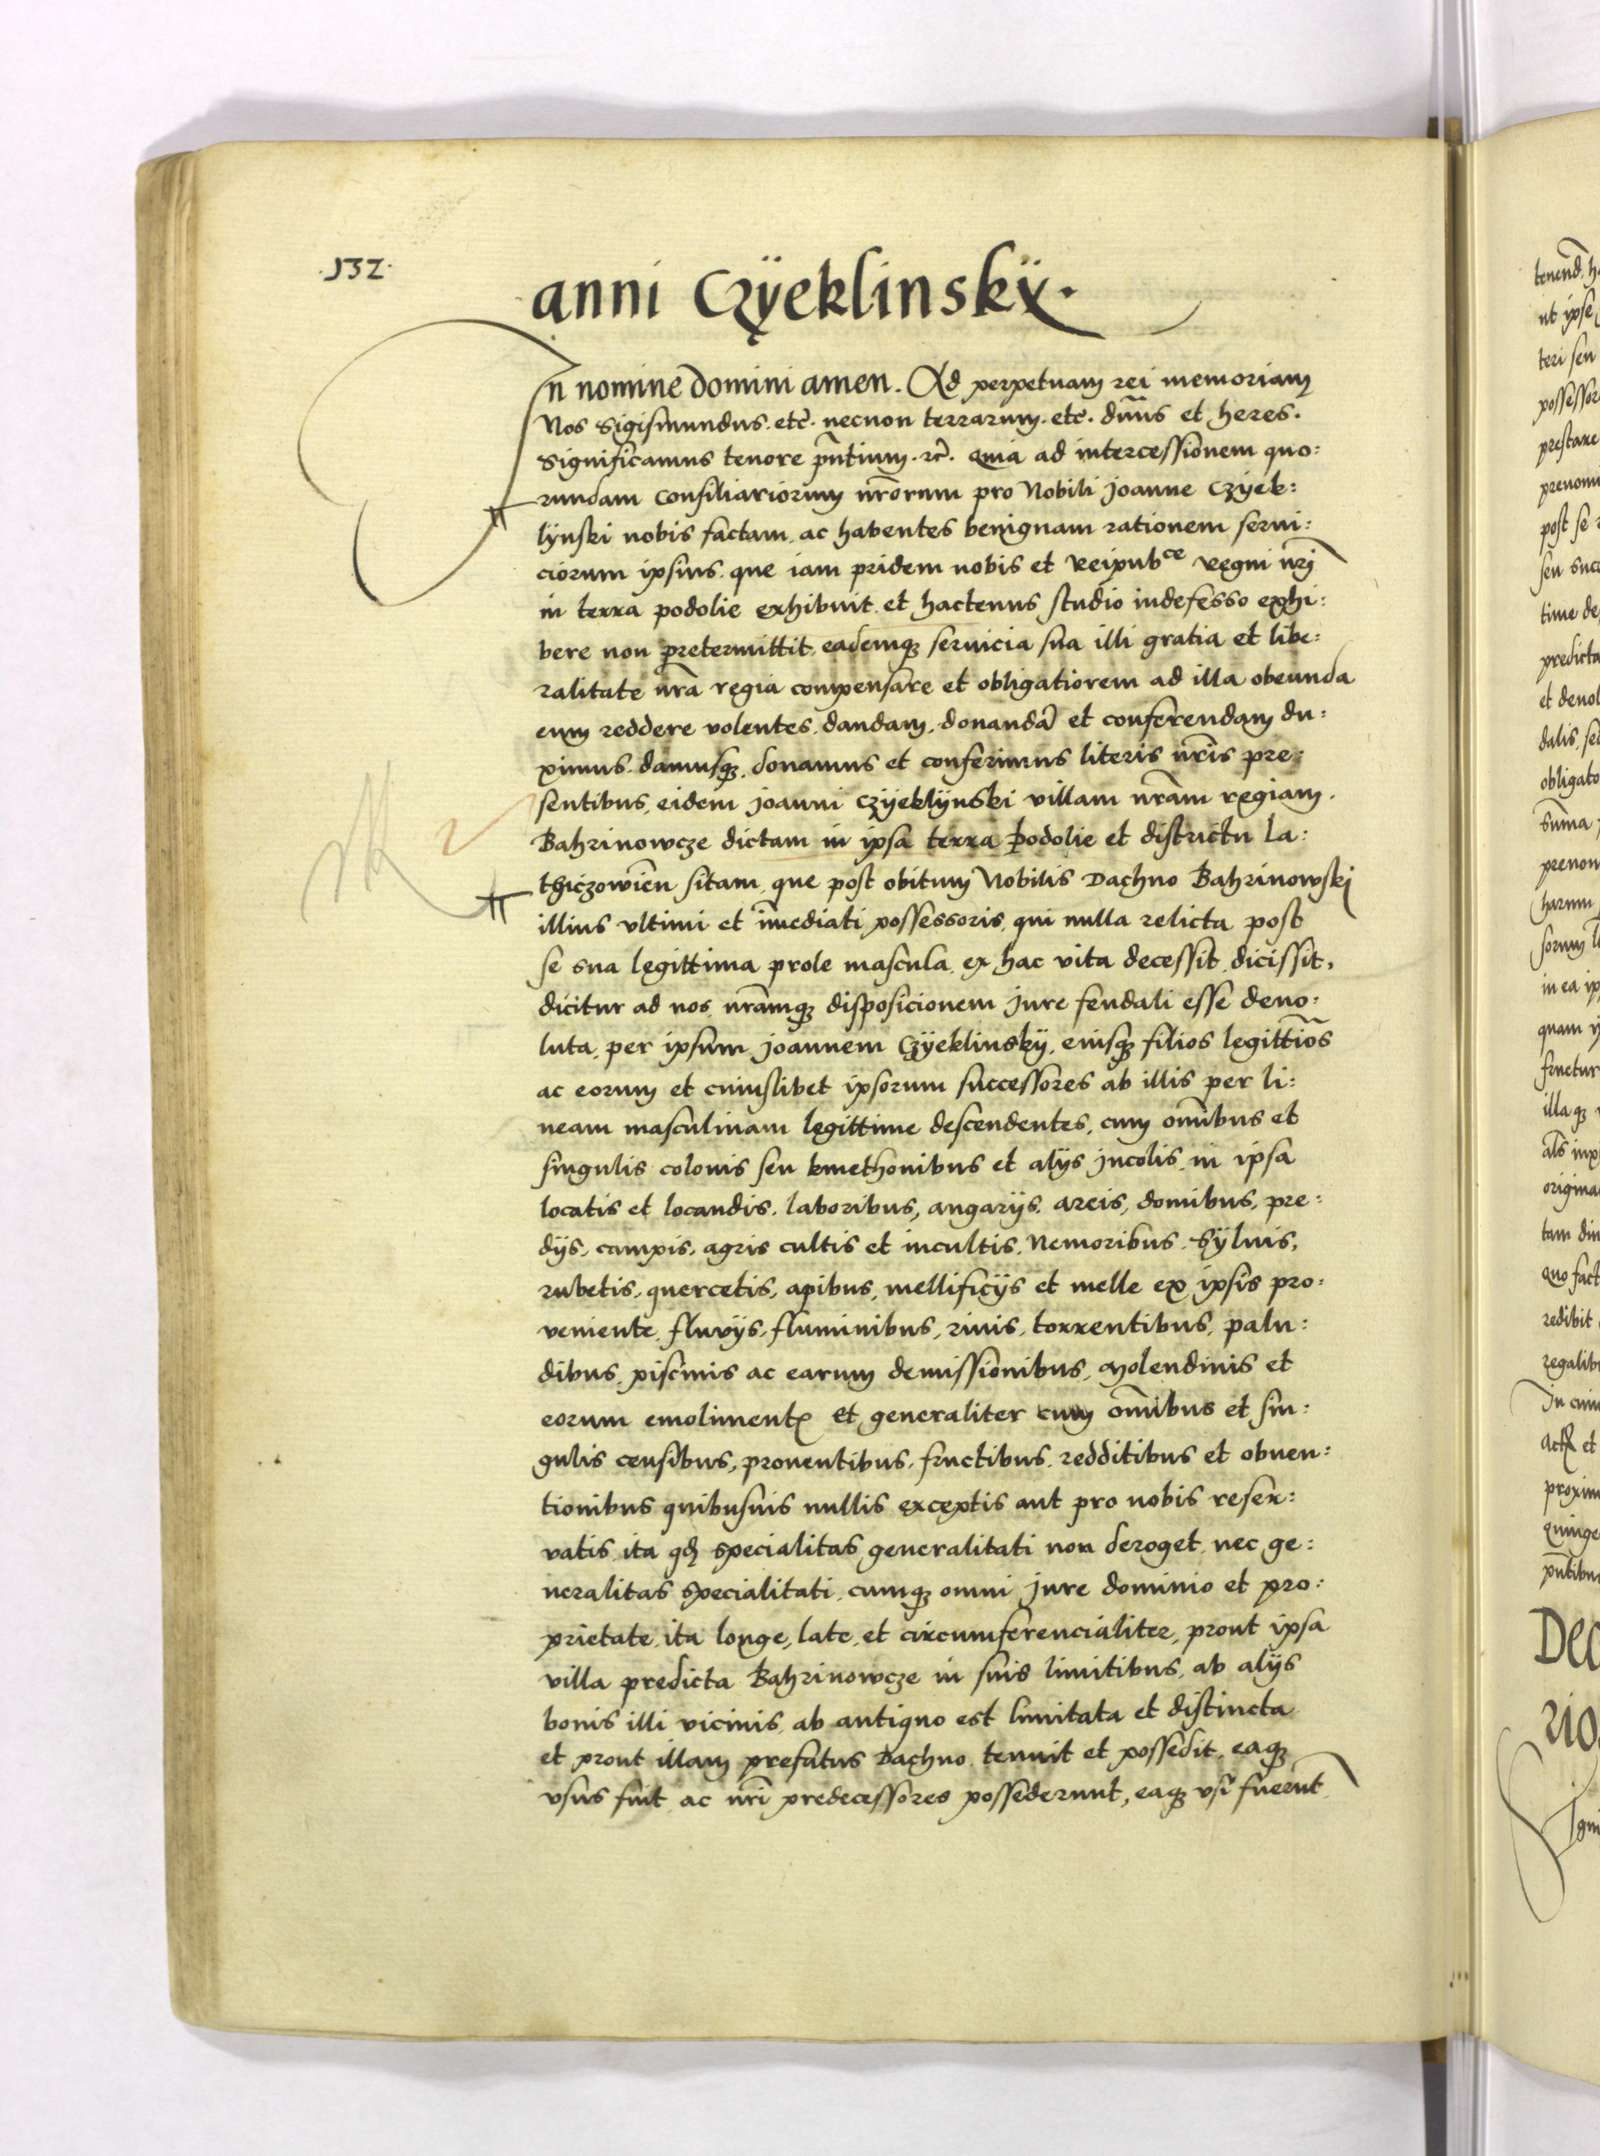 ·132·
anni Czÿeklinskÿ.
In nomine domini amen. Ad perpetuam rei memoriam
Nos Sigismundus. etc̃. necnon terrarum. etc̃. dn̄us et heres.
Significamus tenore pñtium. rc̃. Quia ad intercessionem quo:
rundam consiliariorum nr̃orum pro Nobili Joanne Czÿek:
lÿnski nobis factam, ac habentes benignam rationem serui:
ciorum ipsius. que iam pridem nobis et Reipubce Regni nr̃j
in terra podolie exhibuit et hactenus studio indefesso exhi:
bere non pretermittit, eademqʒ seruicia sua illi gratia et libe:
ralitate nr̃a regia compensare et obligatiorem ad illa obeunda
eum reddere volentes, dandam, donandã et conferendam du:
ximus. damusqʒ, donamus et conferimus literis nr̃is pre:
sentibus, eidem Joanni Czÿeklÿnski villam nr̃am regiam.
Bahrinowcze dictam in ipsa terra Podolie et districtu La:
thiczowien̄ sitam, que post obitum Nobilis Dachno Bahrinowskj
illius vltimi et im̄ediati possessoris, qui nulla relicta post
se sua legittima prole mascula, ex hac vita decessit, dicissit,
dicitur ad nos, nr̃amqʒ disposicionem Jure feudali esse deuo:
luta, per ipsum Joannem Czÿeklinskÿ, eiusqʒ filios legittīos
ac eorum et cuiuslibet ipsorum successores ab illis per li:
neam masculinam legittime descendentes, cum om̄ibus et
singulis colonis seu kmethonibus et alÿs Jncolis, in ipsa
locatis et locandis, laboribus, angarÿs, areis, domibus, pre:
dÿs, campis, agris cultis et incultis, Nemoribus, Sÿluis,
rubetis, quercetis, apibus, mellificÿs et melle ex ipsis pro:
veniente, fluvÿs, fluminibus, riuis, torrentibus, palu:
dibus, piscinis ac earum demissionibus, Molendinis et
eorum emolimentꝭ et generaliter cum om̄ibus et sin:
gulis censibus, prouentibus, fructibus, redditibus et obuen:
tionibus quibusuis nullis exceptis aut pro nobis reser:
vatis, ita qđ specialitas generalitati non deroget, nec ge:
neralitas specialitati, cumqʒ omni Jure dominio et pro:
prietate, ita longe, late, et circumferencialiter, prout ipsa
villa predicta Bahrinowcze in suis limitibus, ab alÿs
bonis illi vicinis, ab antiquo est limitata et distincta
et prout illam prefatus Dachno tenuit et possedit, eaqʒ
vsus fuit, ac nr̃i predecessores possederunt, eaqʒ vsi fuerūt